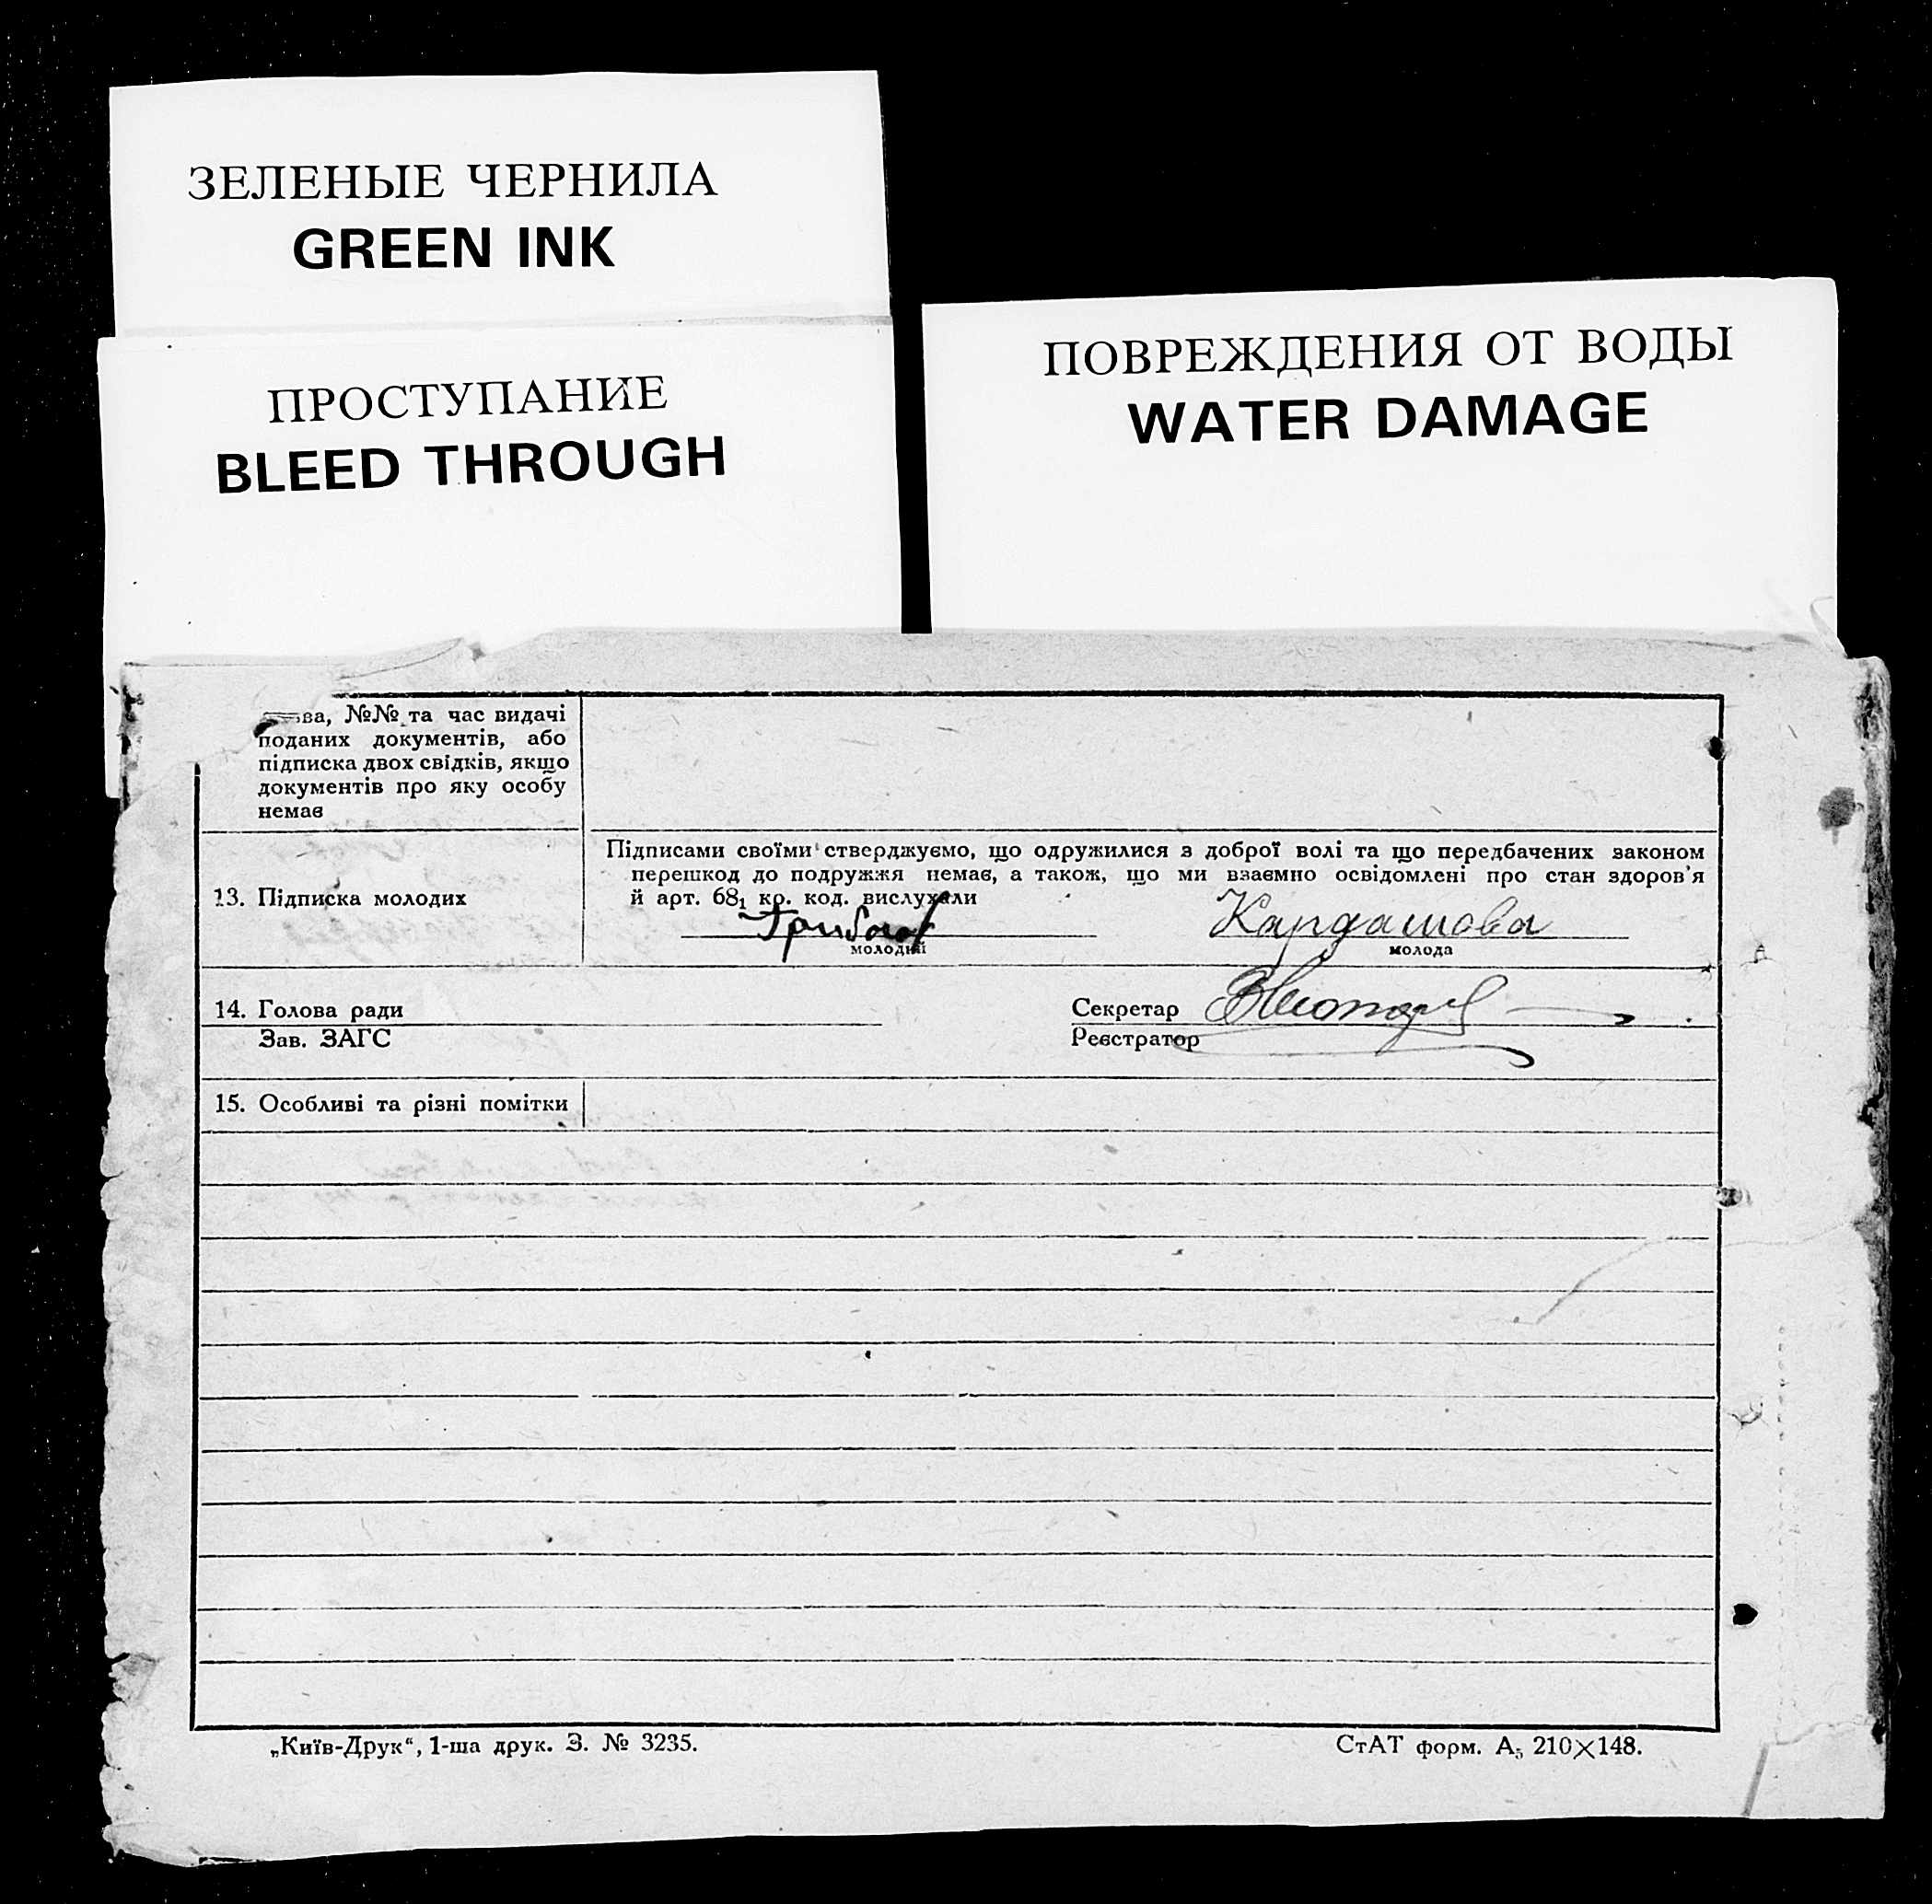 ЗЕЛЕНЫЕ ЧЕРНИЛА
GREEN INK
ПРОСТУПАНИЕ
BLEED THROUGH
ПОВРЕЖДЕНИЯ ОТ ВОДЫ
WATER DAMAGE
№№ та час видачі
поданих документів, або
підписка двох свідків, якщо
документів про яку особу
немає
13. Підписка молодих
Підписами своїми стверджуємо, що одружилися з доброї волі та що передбачених законом
перешкод до подружжя немає, а також, що ми взаємно освідомлені про стан здоров'я
й арт. 68₁ кр. код. вислухали
Кардашова
молодий
молода
14. Голова ради
Секретар
Зав. ЗАГС
Реєстратор
15. Особливі та різні помітки
„Київ-Друк“, 1-ша друк. З. № 3235.
СтАТ форм. А₅ 210×148.